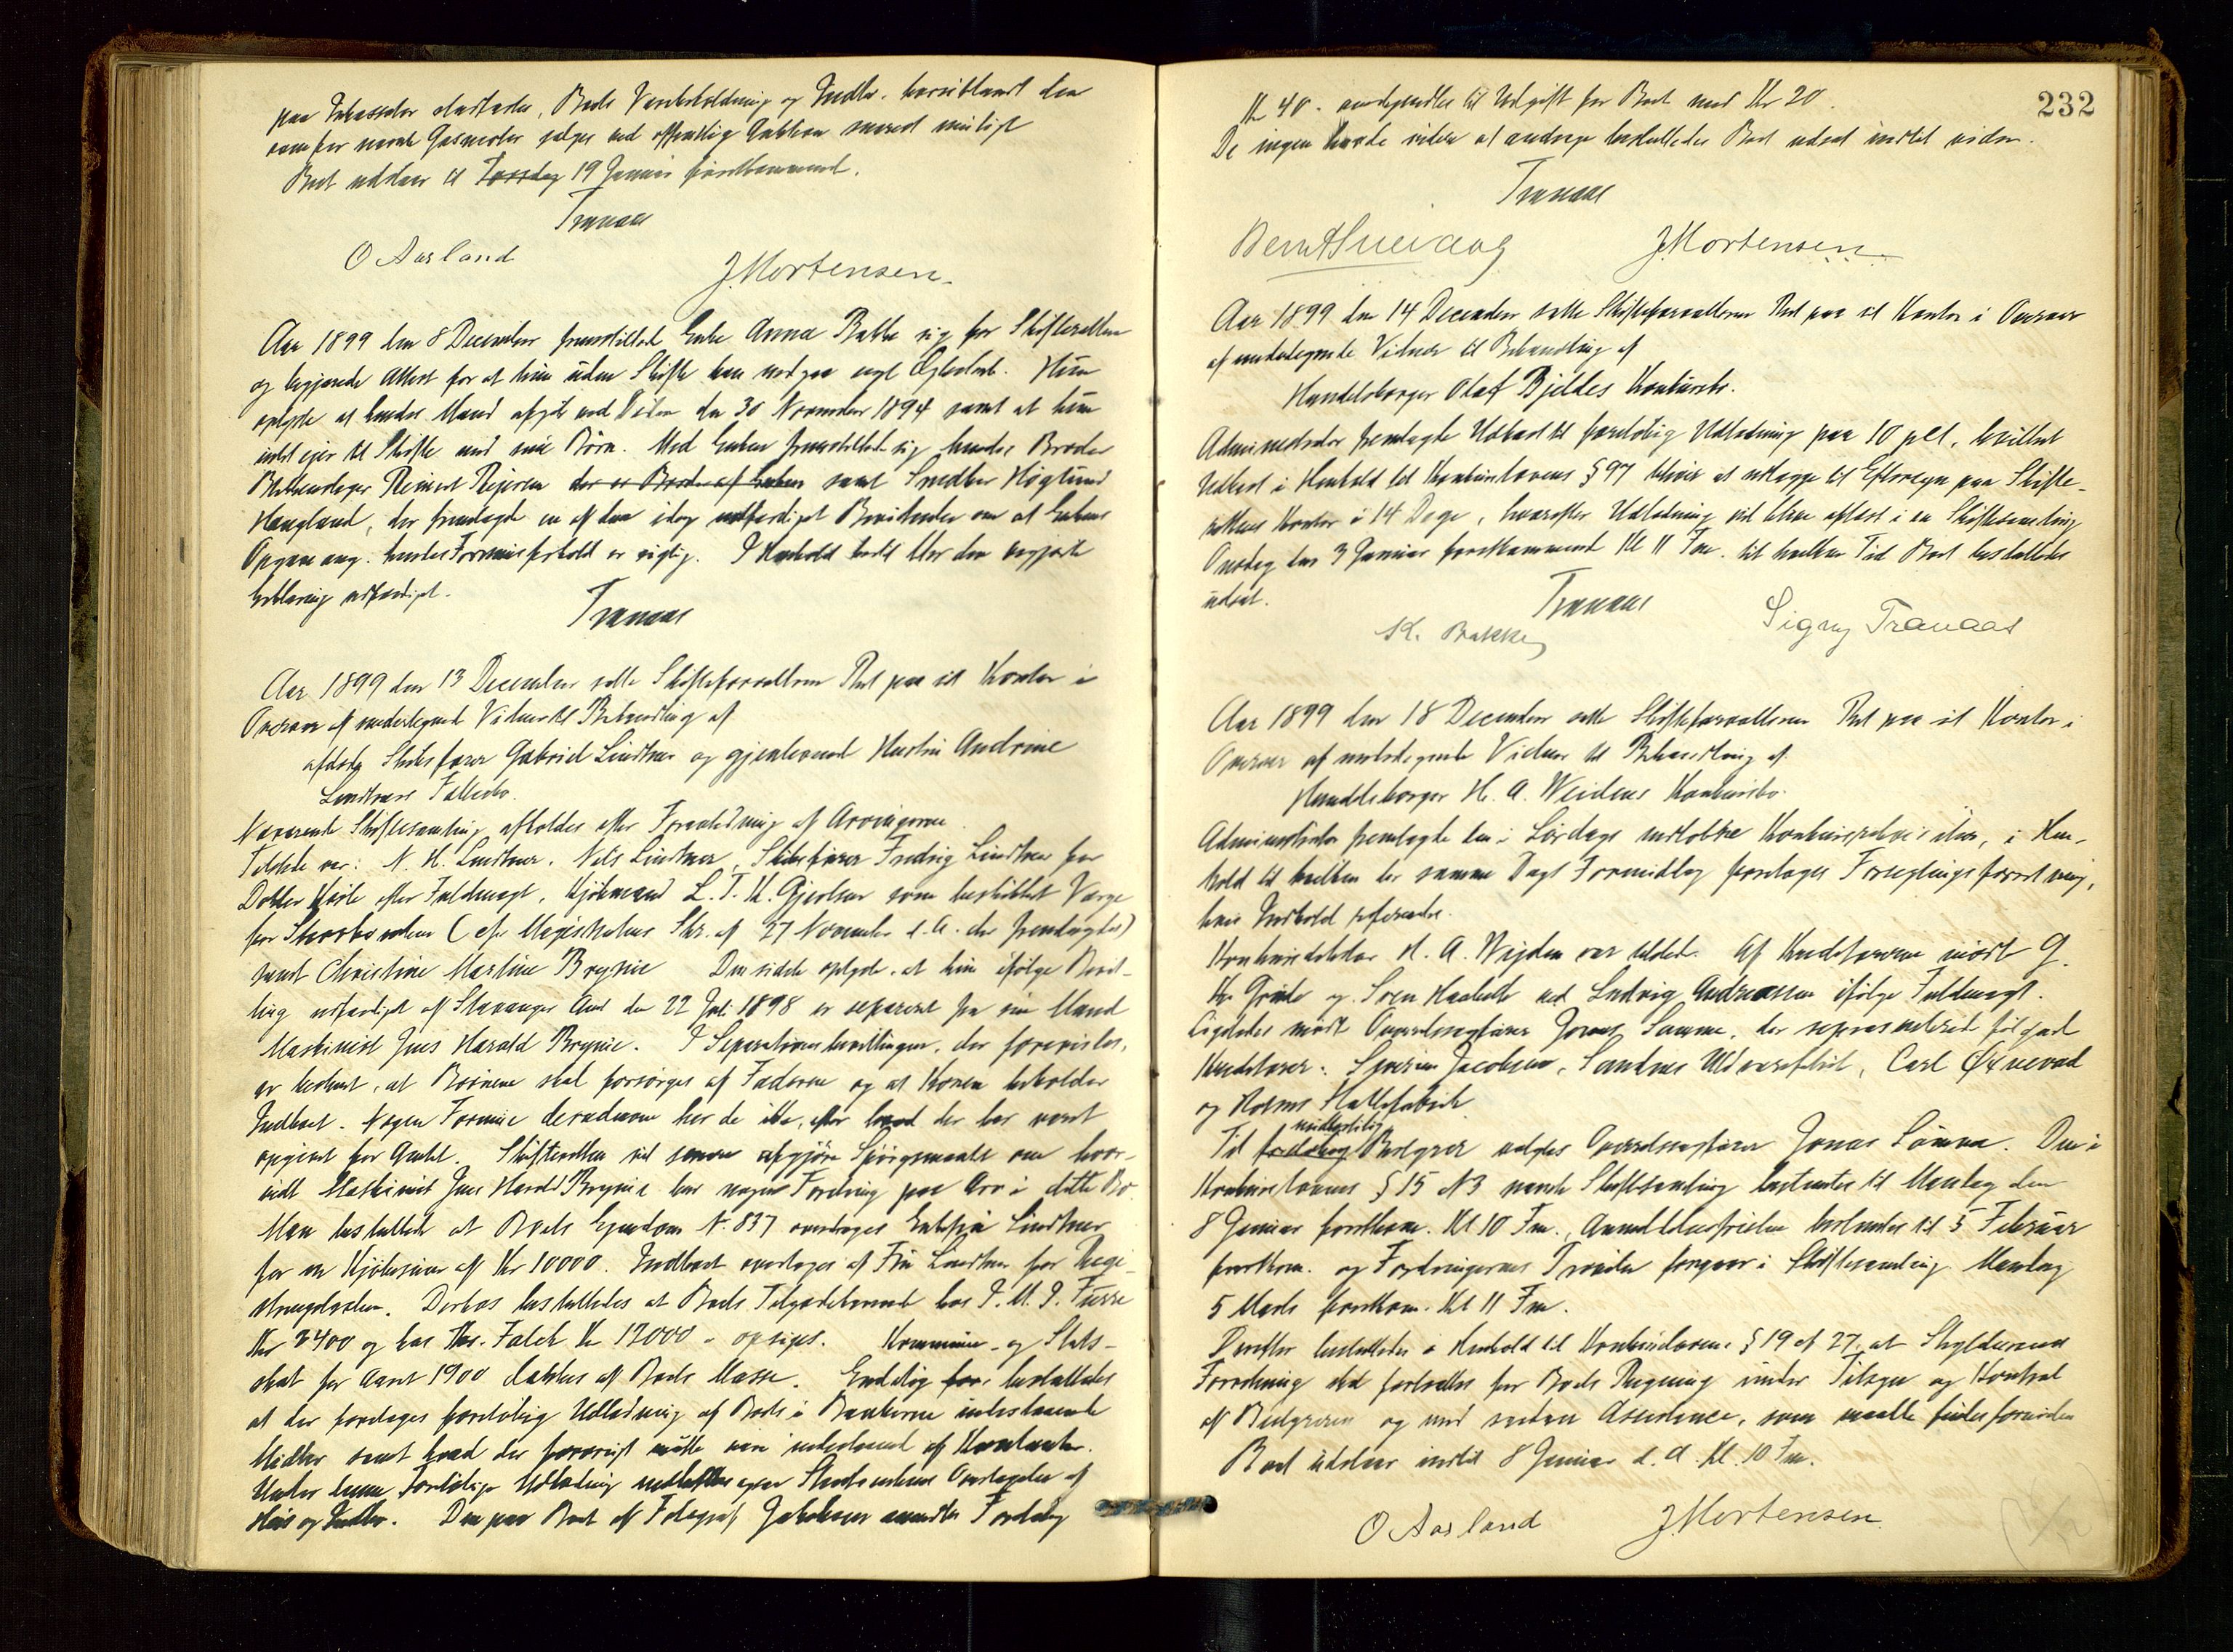 paa Inkassator anstatter, Boets Varebeholdning og Indbo. hvoriblandt den
som før nævnte Gasmotor sælges ved offentlig Auktion snarest muligt
Boet udstaar til Torsdag 19 Januar førstkommende.
Tranaas
O Aarland
J. Mortensen
Aar 1899 den 8 December fremstillede Enke Anna Bakke sig for Skifteretten
og begjærede Attest for at hun uden Skifte kan indgaa nyt Ægteskab. Hun
oplyste at hendes Mand afgik ved Døden den 30 November 1894 samt at hun
intet ejer til Skifte med sine Børn. Med Enken fremstillede sig hendes Broder
Reinert Rejersen der er Broder af Enken samt Snedker Høglund
Haugland, der fremlagde en af dem idag udfærdiget Bevidnelse om at Enkens
Opgave ang. hendes Formuesforhold er rigtig. I Henhold hertil blev den begjærte
Erklæring udfærdiget.
Tranaas
Aar 1899 den 13 December satte Skifteforvalteren Ret paa sit Kontor i
Overvær af undertegnede Vidner til Behandling af
afdøde Skibsfører Gabriel Lindtner og gjenlevende Hustru Andrine
Lindtners Fællesbo.
Nærværende Skiftesamling afholdes efter Foranledning af Arvingerne
Tilstede var: N. H. Lindtner, Nils Lindtner, Skibsfører Fredrig Lindtner for
Dokter efter Fuldmagt, Kjøbmand L. T. K. Gjerlsen som beskikket Værge
for (cfr Magistratens Skr. af 27 November d. A. der fremlagdes)
samt Christine Martine Brynie Den sidste oplyste, at hun ifølge Bevil-
ling udfærdiget af Stavanger Amt den 22 Juli 1898 er separeret fra sin Mand
Maskinist Jens Harald Brynie. I Separationsbevillingen, der forevistes,
er bestemt, at Børnene skal forsørges af Faderen og at Konen beholder
Indboet. Nogen Formue derudover har de ikke, efter hvad der har været
opgivet for Amtet. Skifteretten vil senere afgjøre Spørgsmaalet om hvor-
vidt Maskinist Jens Harald Brynie har nogen Fordring paa Arv i dette Bo
Man besluttede at Boets Ejendom No. 837 overdrages Enkefru Lindtner
for en Kjøbesum af Kr 10000. Indboet overtages af Fru Lindtner for Regi-
streringstaksten. Derhos besluttedes at Boets Tilgodehavende hos P. M. I. Furre
Kr 2400 og hos Ths. Falck Kr 12000 - opsiges. Kommune- og Stats-
skat for Aaret 1900 dækkes af Boets Masse. Endelig for besluttedes
at der foretages foreløbig Udlodning af Boets i Bankerne indestaaende
Midler samt hvad der forøvrigt maatte være indestaaende af Kontanter.
Under denne Foreløbige Udlodning Overtagelse af
Hus og Indbo. Den paa Boet af Fotograf Jakobsen anmeldte Fordring
232
Kr 40. anerkjendtes til Udgift for Boet med Kr 20.
Da ingen havde videre at andrage besluttedes Boet udsat indtil videre.
Tranaas
Bernt Sueidag
J. Mortensen
Aar 1899 den 14 December satte Skifteforvalteren Ret paa sit Kontor i Overvær
af undertegnede Vidner til Behandling af
Handelsborger Olaf Bjeldes Konkursbo.
Administrator fremlagde Udkast til foreløbig Udlodning paa 10 pCt. hvilket
Udkast i Henhold til Konkurslovens § 97 bliver at udlægge til Eftersyn paa Skifte-
rettens Kontor i 14 Dage, hvorefter Udlodning vil blive afläst i en Skiftesamling
Onsdag den 3 Januar førstkommende Kl 11 Fm. til hvilken Tid Boet besluttedes
udsat.
Tranaas
K. Bakke
Signy Tranaas
Aar 1899 den 18 December satte Skifteforvalteren Ret paa sit Kontor i
Overvær af undertegnede Vidner til Behandling af
Handelsborger H. A. Weidens Konkursbo.
Administrator fremlagde den i Lørdags indløbne Konkursbegjæring, i Hen-
hold til hvilken der samme Dags Formiddag foretoges Forseglingsforretning,
hvis Indhold refereredes.
Konkursdebitor H. A. Weiden var tilstede. Af Kreditorerne mødte G.
Kr Grude og Sven Haabeth ved Ludvig Andreassen ifølge Fuldmagt.
Ligeledes mødte Overretssagfører Jonas Sømme, der repræsenterede følgende
Kreditorer: Severin Jacobsen, Sandnes Uldvarefabrik, Carl Øxnevad
og Holmes Hattefabrik.
midlertidig
Til foreløbig Bestyrer valgtes Overretssagfører Jonas Sømme. Den i
Konkurslovens § 15 No 3 nævnte Skiftesamling berammedes til Mandag den
8 Januar førstkom. Kl 10 Fm., Anmeldelsesfristen bestemtes til 5 Februar
førstkom. og Fordringernes Prøvelse foregaar i Skiftesamling Mandag
5 Marts førstkom. Kl 11 Fm.
Derefter besluttedes i Henhold til Konkurslovens § 19 cf 27, at Skyldnerens
Forretning skal fortsættes for Boets Regning under Tilsyn og Kontrol
af Bestyreren og med saadan Assistance, som maatte findes fornøden
Boet udstaar indtil 8 Januar d. A. Kl. 10 Fm.
O Aarland
J. Mortensen